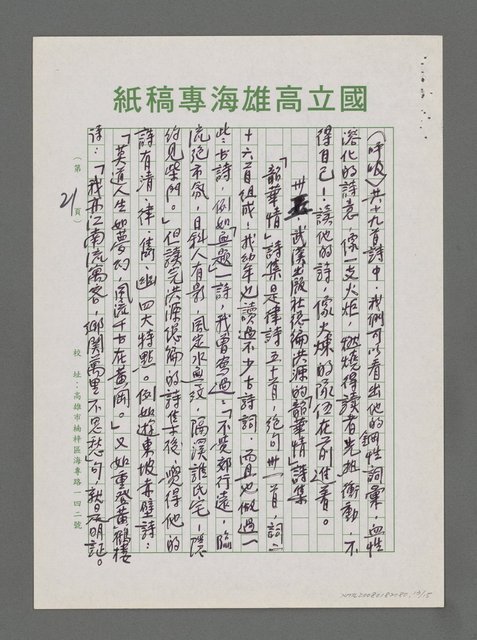 國立高雄海專稿紙
(呼吸)共十九首詩中，我們可以看出他的鋼性詞彙，血性
溶化的詩意，像一支火炬，燃燒得讀者先抱衝動，不
得自已！讀他的詩，像火煉的隊伍在前進着。
卅五 武漢出版社張倫洪源的韻華情」詩集
「韻華情」詩集是律詩五十首，絕句卅一首，詞二
十六首組成！我幼年也讀過不少古詩詞，而且也做過一
些古詩，例如「無題」一詩，我曾寫過：「不覺郊行遠，臨
流絕市氛，日斜人有影，風定水無紋，隔溪誰氏宅，隱
約見柴門。」但讀完洪源張倫的詩集後，覺得他的
詩有清，律，雋，幽四大特點。例如遊東坡赤壁詩：
「莫道人生如夢幻，風流千古在黃岡。」又如重登黃鶴樓
詩：「我亦江南流寓客，鄉關萬里不思愁」句，就是明証。
(第 21 頁)
校址：高雄市楠梓區海專路一四二號